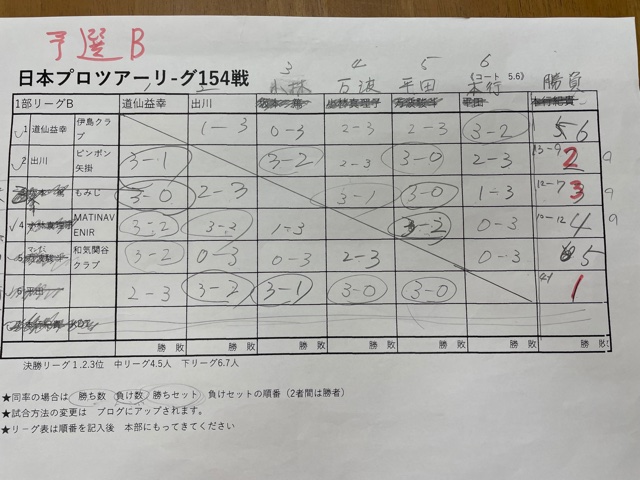 予選B
日本プロツアーリ-グ154戦
3 4 5 6 (コート 5.6)
1部リーグB 道仙益幸 出川 小林 万波 平田 本行 勝負
1 道仙益幸 伊島クラブ 1-3 0-3 2-3 2-3 3-2 6
2 出川 ピンポン矢掛 3-1 3-2 2-3 3-0 2-3 13-9 2
もみじ 3-0 2-3 3-1 3-0 1-3 12-7 3
4 MATINAVENIR 3-2 3-2 1-3 3-2 0-3 10-12 4
和気関谷クラブ 3-2 0-3 0-3 2-3 0-3 5
2-3 3-2 3-1 3-0 3-0 1
勝 敗 勝 敗 勝 敗 勝 敗 勝 敗 勝 敗 勝 敗
決勝リーグ1.2.3位 中リーグ4.5人 下リーグ6.7人
★同率の場合は 勝ち数 負け数 勝ちセット 負けセットの順番（2者間は勝者）
★試合方法の変更は ブログにアップされます。
★リーグ表は順番を記入後 本部にもってきてください